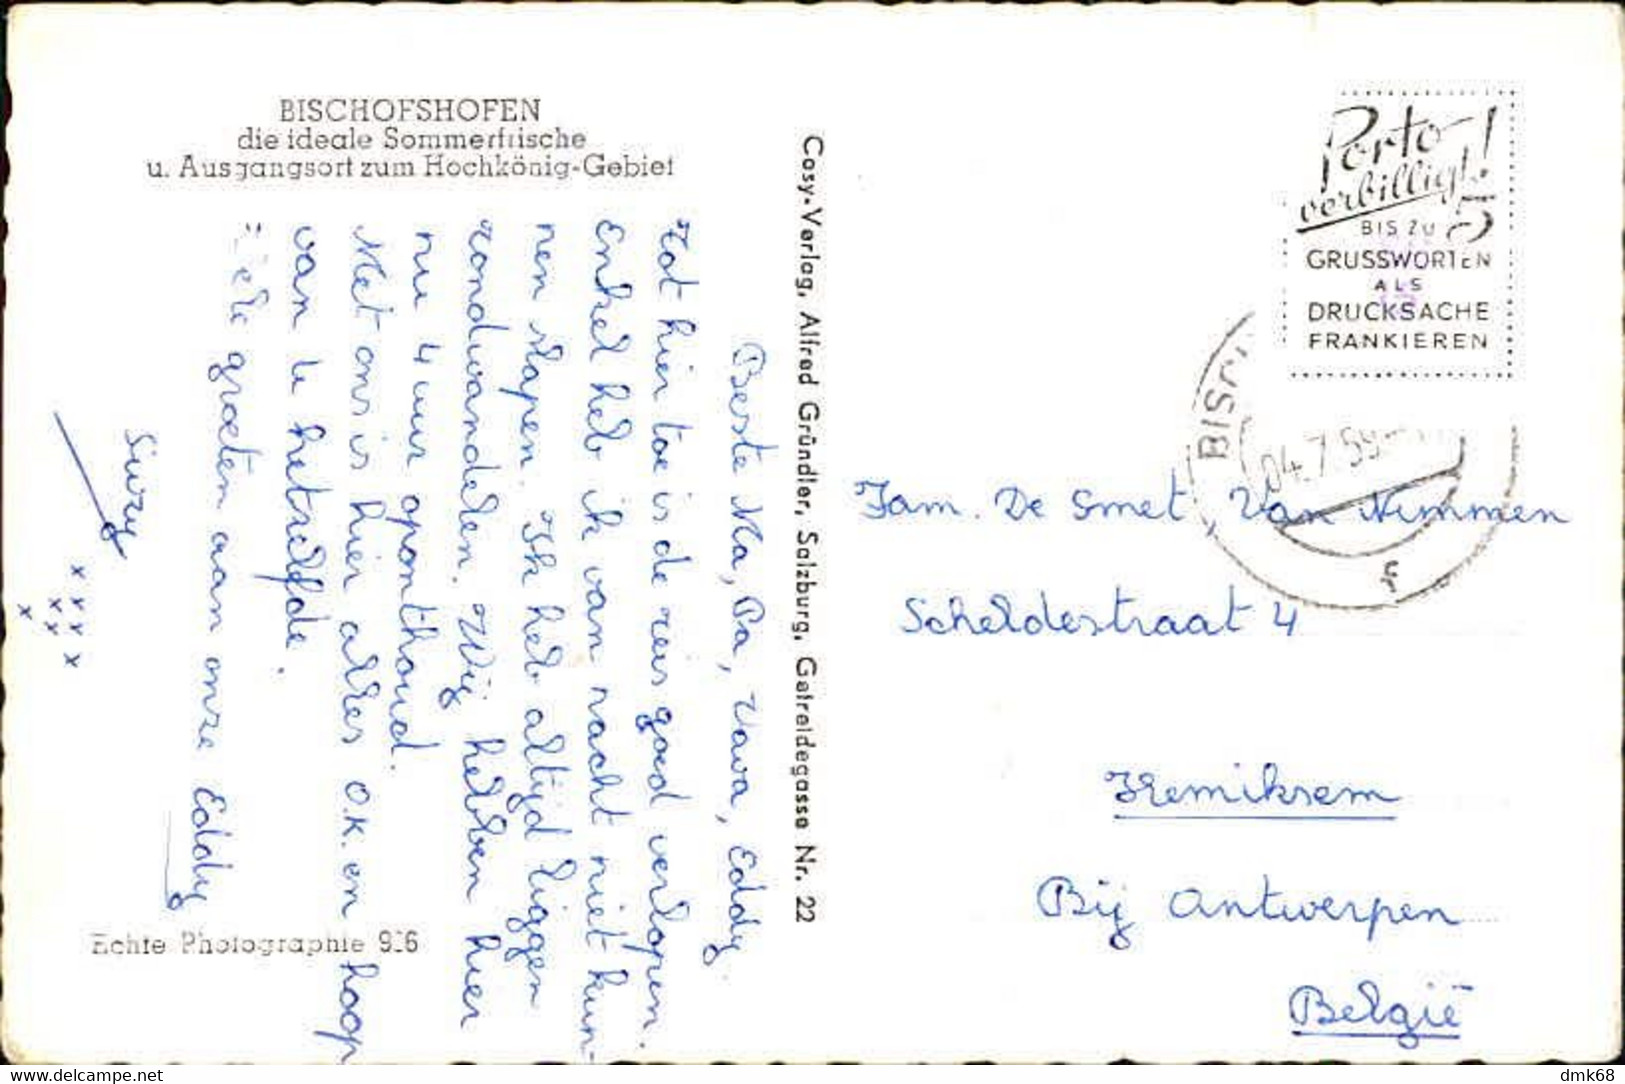 BISCHOFSHOFEN
die ideale Sommerfrische
u. Ausgangsort zum Hochkönig-Gebiet
Beste Ma, Pa, Vava, Eddy
Tot hier toe is de reis goed verlopen.
Enkel heb ik van nacht niet kun-
nen slapen. Ik heb altijd liggen
rondwandelen. Wij hebben hier
nu 4 uur oponthoud.
Met ons is hier alles O.K. en hoop
van U hetzelfde.
Vele groeten aan onze Eddy
Suzy
x x x x
x x
x
Echte Photographie 926
Cosy-Verlag, Alfred Gründler, Salzburg, Getreidegasse Nr. 22
Porto
verbilligt!
BIS ZU 5
GRUSSWORTEN
ALS
DRUCKSACHE
FRANKIEREN
04.7.59
Fam. De Smet Van Nimmen
Scheldestraat 4
Hemiksem
Bij Antwerpen
België
https://www.delcampe.net
dmk68